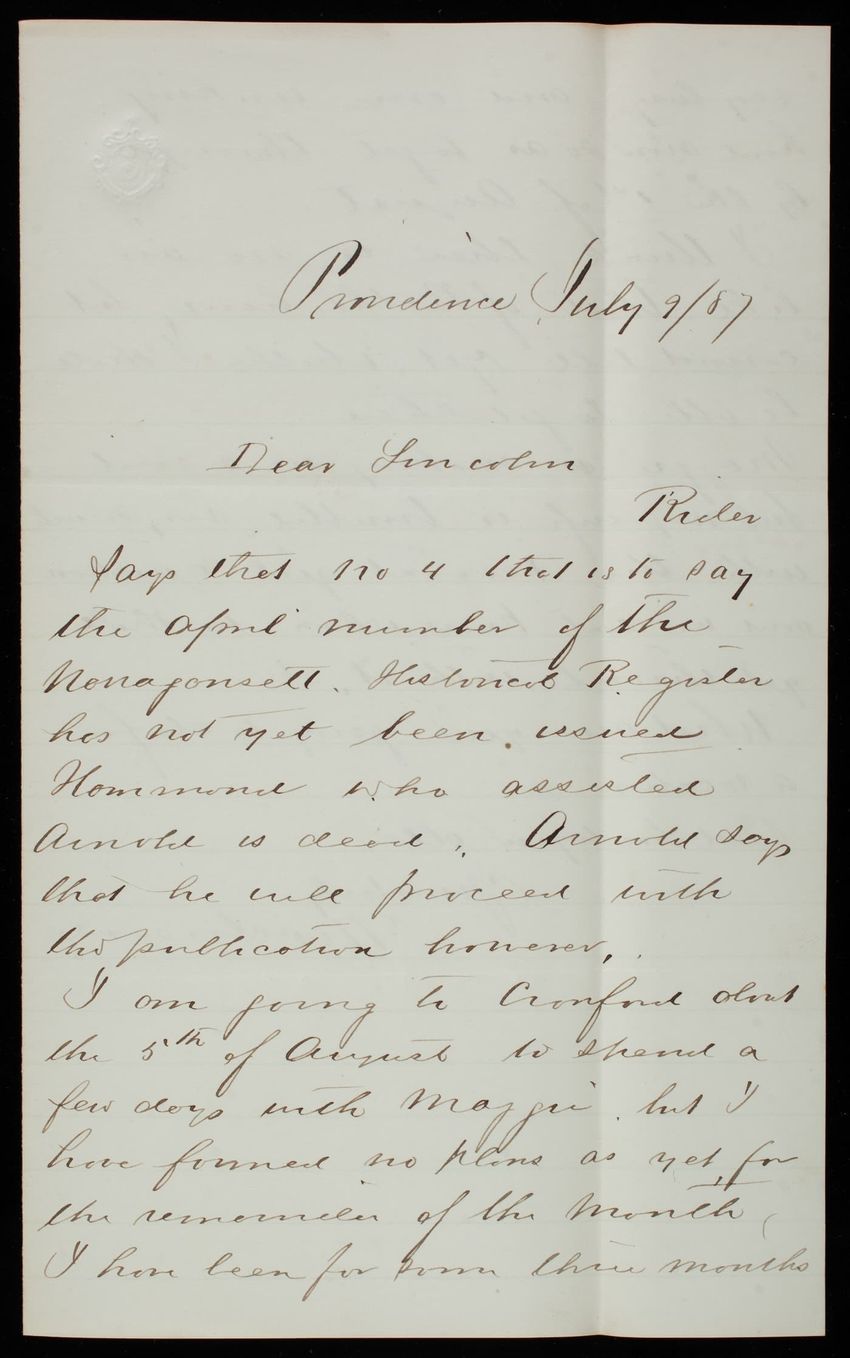 Providence July 9/87
Dear Lincoln
Rider
says that no 4 that is to say
the April number of the
Narragansett Historical Register
has not yet been issued
Hammond who assisted
Arnold is dead. Arnold says
that he will proceed with
the publication however.
I am going to Cranford about
the 5th of August to spend a
few days with Maggie but I
have formed no plans as yet for
the remainder of the month
I have been for some three months